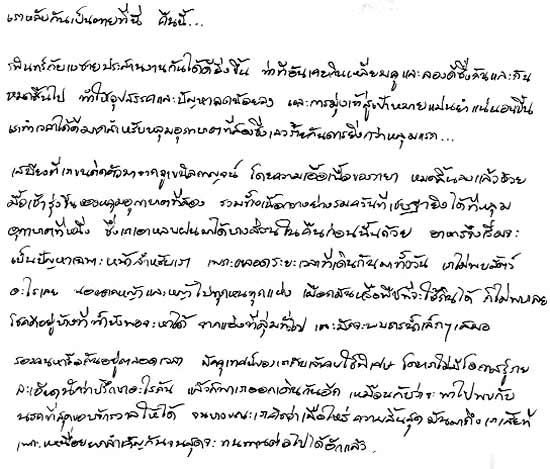 เราหลับกันเป็นตายที่นี่ คืนนี้...
รพินทร์กับแงซายประสานงานกันได้ดียิ่งขึ้น ท่าทีอันเคยกินเหลี่ยมคูและลองดีซึ่งกันและกัน
หมดสิ้นไป ทำให้อุปสรรคและปัญหาลดน้อยลง และการมุ่งเข้าสู่เป้าหมายแม่นยำแน่นอนขึ้น
เราทำเวลาได้ดีมากสำหรับหลุมอุกกาบาตที่สองซึ่งเลวร้ายกันดารยิ่งกว่าหลุมแรก...
เสบียงที่เราขนติดตัวมาจาก โดยความเอื้อเฟื้อของ หมดสิ้นลงแล้วด้วย
มื้อเช้ารุ่งขึ้นของหลุมอุกกาบาตที่สอง รวมทั้งเนื้อกวางย่างรมควันที่เชษฐายิงได้ที่หลุม
อุกกาบาตที่หนึ่ง ซึ่งเราเอาหลบฝนมาได้บางส่วนในคืนก่อนนั้นด้วย อาหารจึงเริ่มจะ
เป็นปัญหาเฉพาะหน้าสำหรับเรา เพราะตลอดระยะเวลาที่เดินกันมาทั้งวัน เราไม่พบสัตว์
อะไรเลย นอกจากหญ้าและหญ้าไปทุกหนทุกแห่ง เผือกมันหรือพืชที่จะใช้กินได้ ก็ไม่พบเลย
โชคดีอยู่บ้างที่น้ำยังพอจะหาได้ จากแอ่งที่ลุ่มทั่วไป และมักจะพบธารน้ำเล็กๆเสมอ
มัคคุเทศก์ของเราคือ โดยเราไม่มีโอกาสรู้ราย
ละเอียดนักว่าปรึกษาอะไรกัน แล้วก็พาเราออกเดินกันอีก เหมือนกับว่าจะพาไปพบกับ
นรกที่สุดขอบจักรวาลให้ได้ จนบางขณะเราคิดว่าเมื่อไหร่ความสิ้นสุดมันมาถึงเราเสียที
เพราะเหนื่อยยากลำเค็ญกันจนสุดจะทนทานต่อไปได้อีกแล้ว.